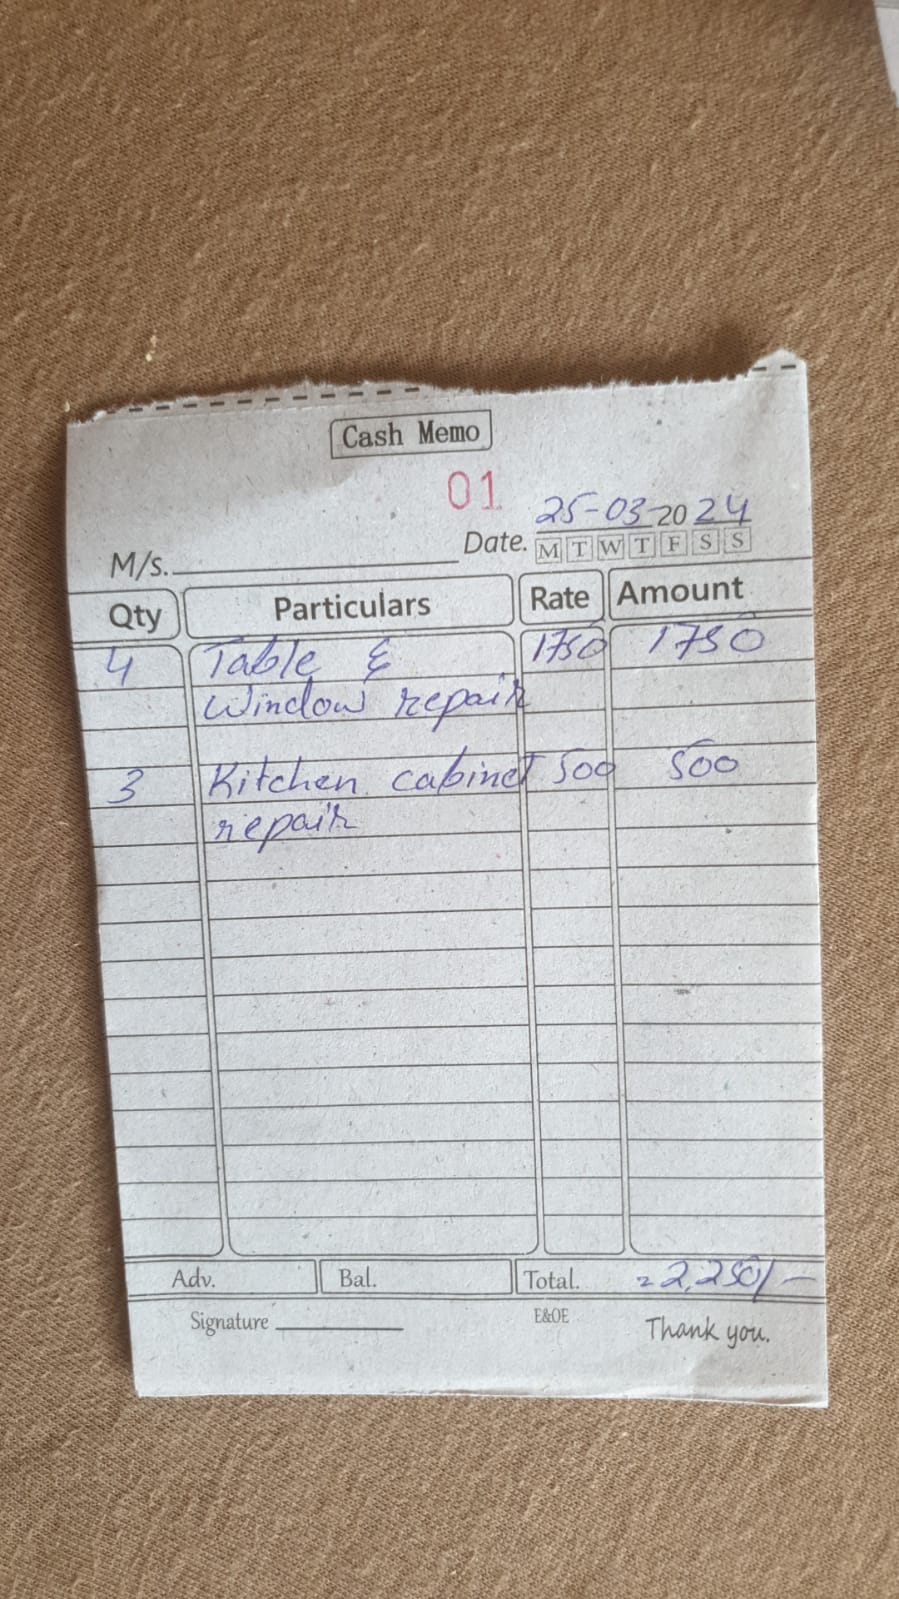 Cash Memo
01
25-03-2024
M/s. Date. M T W T F S S
Qty Particulars Rate Amount
4 Table & 1750 1750
Window repair
3 Kitchen cabinet 500 500
repair
Adv. Bal. Total. = 2,250/-
Signature E&OE Thank you.